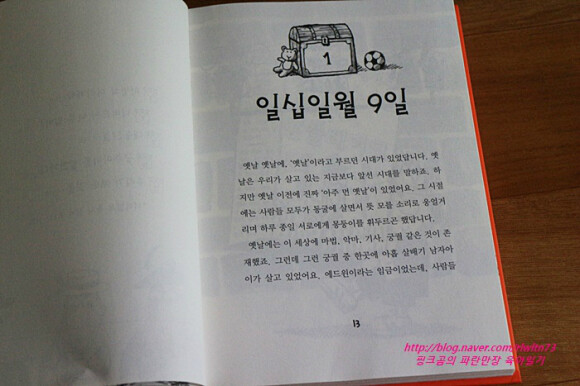 1
일십일월 9일
옛날 옛날에, '옛날'이라고 부르던 시대가 있었답니다. 옛
날은 우리가 살고 있는 지금보다 앞선 시대를 말하죠. 하
지만 옛날 이전에 진짜 '아주 먼 옛날'이 있었어요. 그 시절
에는 사람들 모두가 동굴에 살면서 뜻 모를 소리로 웅얼거
리며 하루 종일 서로에게 몽둥이를 휘두르곤 했답니다.
옛날에는 이 세상에 마법, 악마, 기사, 궁궐 같은 것이 존
재했죠. 그런데 그런 궁궐 중 한곳에 아홉 살배기 남자아
이가 살고 있었어요. 에드윈이라는 임금이었는데, 사람들
13
http://blog.naver.com/riwith73
핑크곰의 파란만장 육아일기